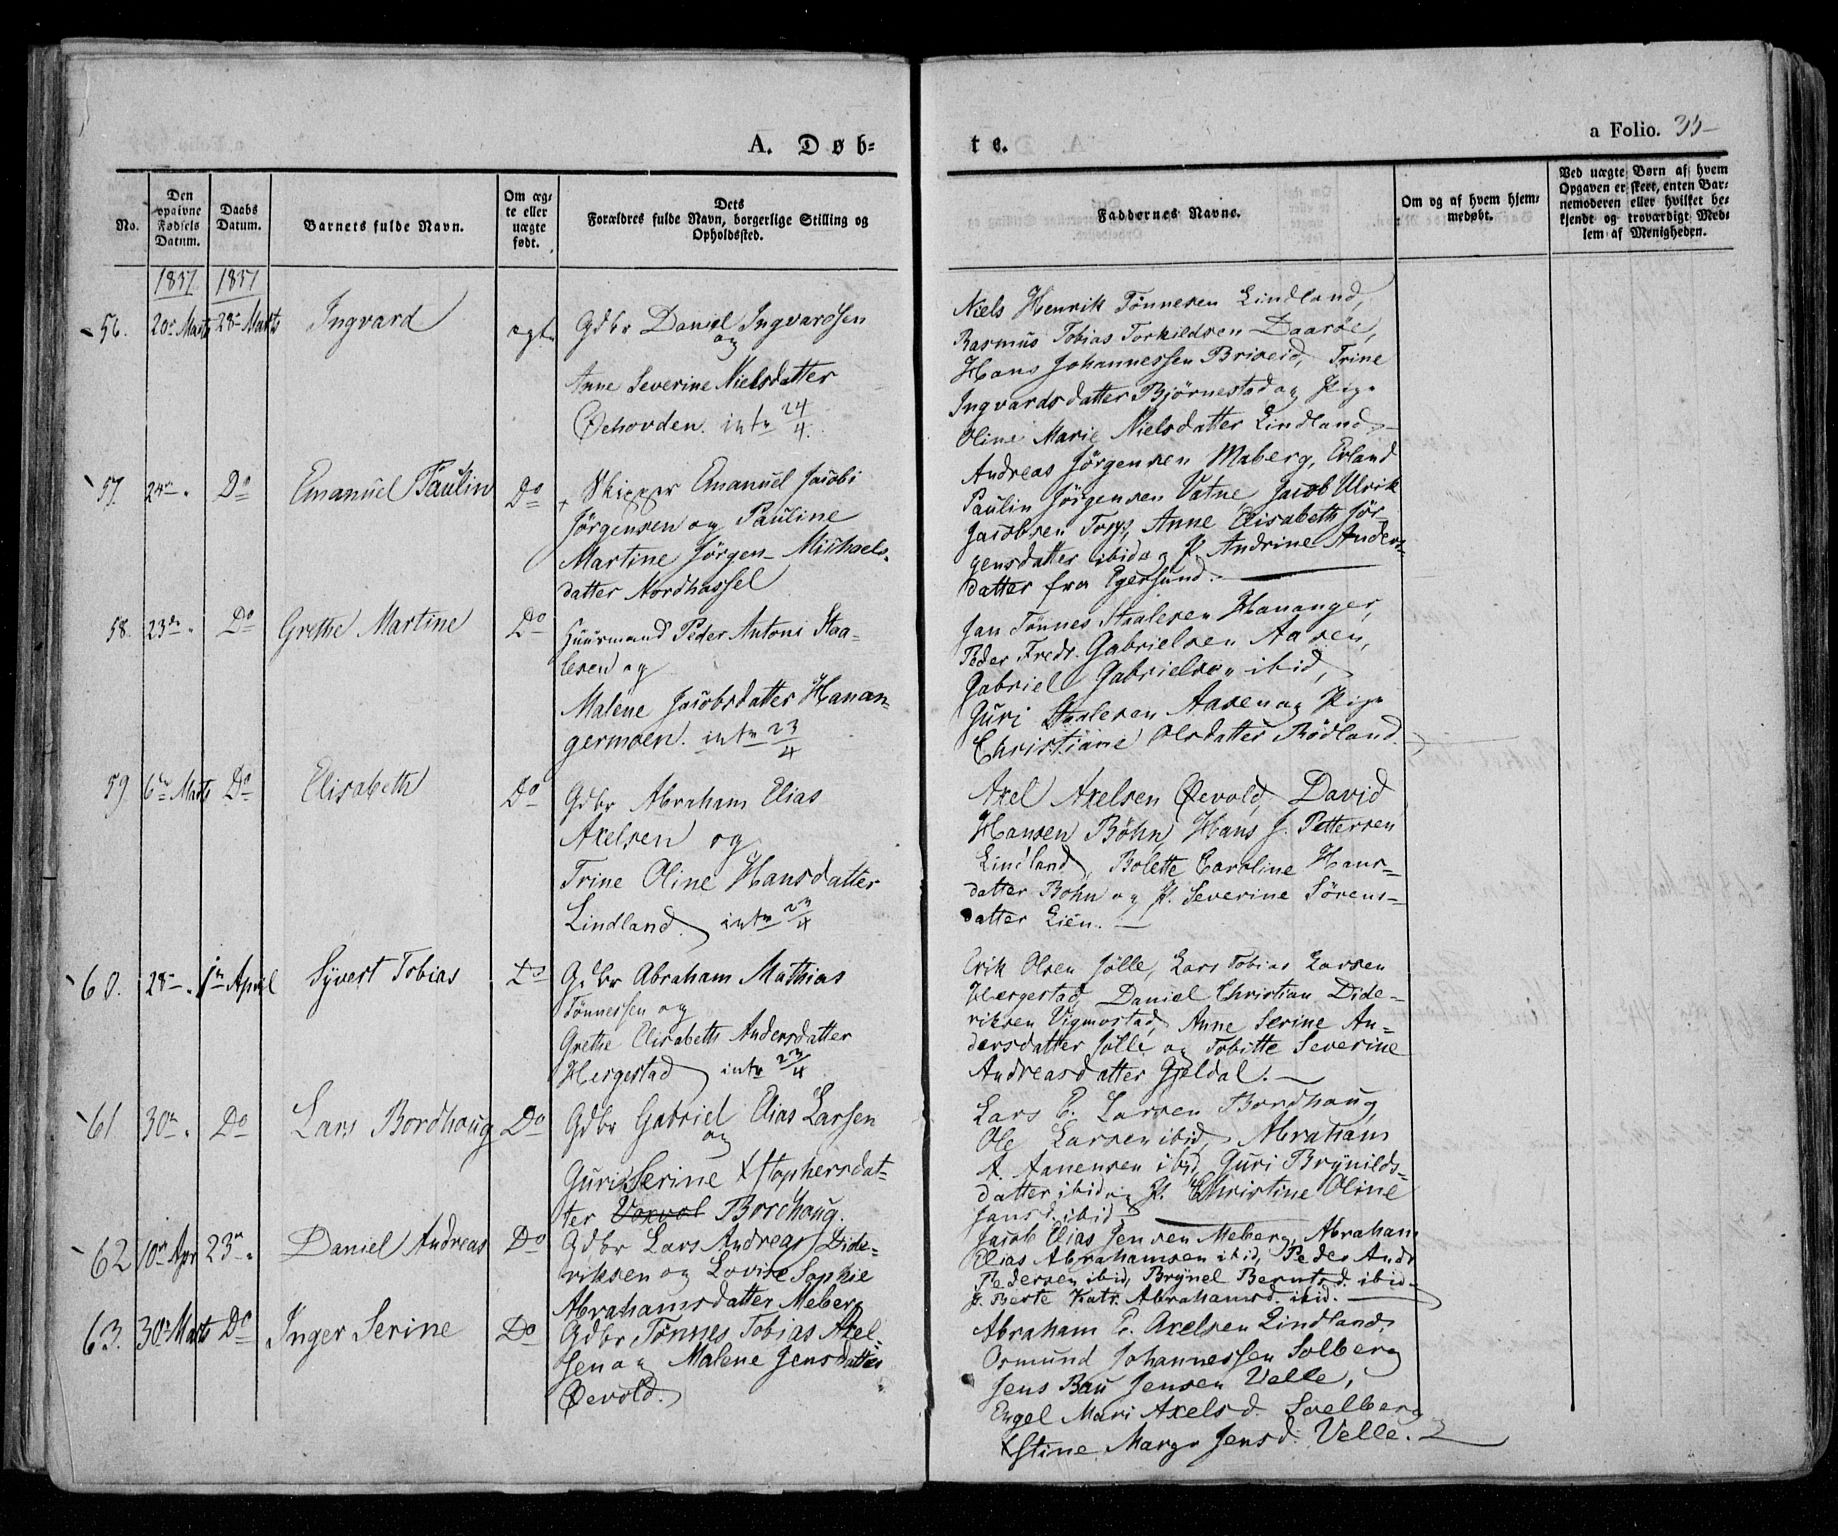 A. Døb-
te.
a Folio. 35
No.
Den opgivne Fødsels Datum.
Daabs Datum.
Barnets fulde Navn.
Om ægte eller uægte født.
Dets Forældres fulde Navn, borgerlige Stilling og Opholdssted.
Faddernes Navne.
Om og af hvem hjemmedøbt.
Ved uægte Børn af hvem Opgaven er skeet, enten Barnemoderen eller hvilket bekjendt og troværdigt Medlem af Menigheden.
1837 1837
56. 20 Marts 28 Marts Ingvard ægte
Gdbr Daniel Ingvardsen
og
Anne Severine Nielsdatter
Øehovden. intr 24/4.
Niels Henrik Tönnesen Lindland,
Rasmus Tobias Torkildsen Daarøe,
Hans Johannessen Briseid, Trine
Ingvardsdatter Bjørnestad og Pige
Oline Marie Nielsdatter Lindland
57. 24 Do Emanuel Paulin Do
Skipper Emanuel Jacobi
Jörgensen og Pauline
Martine Jörgen Michaels-
datter Nordhassel
Andreas Jörgensen Maberg, Erland
Paulin Jörgensen Vatne, Jacob Ulrik
Jacobsen Torp, Anne Elisabeth Jör-
gensdatter ibid og P. Andrine Anders-
datter fra Egersund.
58. 23de Do Grethe Martine Do
Huusmand Peder Antoni Staa-
lesen og
Malene Jacobsdatter Hanan-
germoen. intr 23/4
Jan Tönnes Staalesen Hananger,
Peder Fredr. Gabrielsen Aasen,
Gabriel Gabrielsen ibid,
Guri Staalesen Aasen og Pige
Christiane Olsdatter Bödland.
59 6te Marts Do Elisabeth Do
Gdbr Abraham Elias
Axelsen og
Trine Oline Hansdatter
Lindland. intr 23/4
Axel Axelsen Øevold, David
Hansen Böhn, Hans J. Pettersen
Lindland, Bolette Caroline Hans-
datter Bohn og P. Severine Sörens-
datter Eien.
60. 28 1te April Syvert Tobias Do
Gdbr Abraham Mathias
Tönnessen og
Grethe Elisabeth Andersdatter
Hergestad intr 23/4
Erik Olsen Jölle, Lars Tobias Larsen
Hergestad, Daniel Christian Dide-
riksen Vigmostad, Anne Serine An-
dersdatter Jölle og Tobitte Severine
Andreasdatter Gjeldal.
61 30 Do Lars Bordhaug Do
Gdbr Gabriel Elias Larsen
og
Guri Serine Xstophersdat-
ter Bordhaug.
Lars E. Larsen Bordhaug,
Ole Larsen ibid, Abraham
A. Aanensen ibid, Guri Brynilds-
datter ibid og P. Christine Oline
Jansd. ibid
62 10 Apr 23 Daniel Andreas Do
Gdbr Lars Andreas Dide-
riksen og Lovise Sophie
Abrahamsdatter Meberg
Jacob Elias Jensen Meberg, Abraham
Elias Abrahamsen ibid, Peder Andr
Pedersen ibid, Brynel Berntsd. ibid
P. Berte Katr. Abrahamsd. ibid.
63. 30 Marts Do Inger Serine Do
Gdbr Tönnes Tobias Axel-
sen og Malene Jensdatter
Øevold.
Abraham E. Axelsen Lindland,
Osmund Johannessen Solberg
Jens Bau Jensen Velle,
Engel Mari Axelsd. Soelberg
Xstine Margr Jensd. Velle.